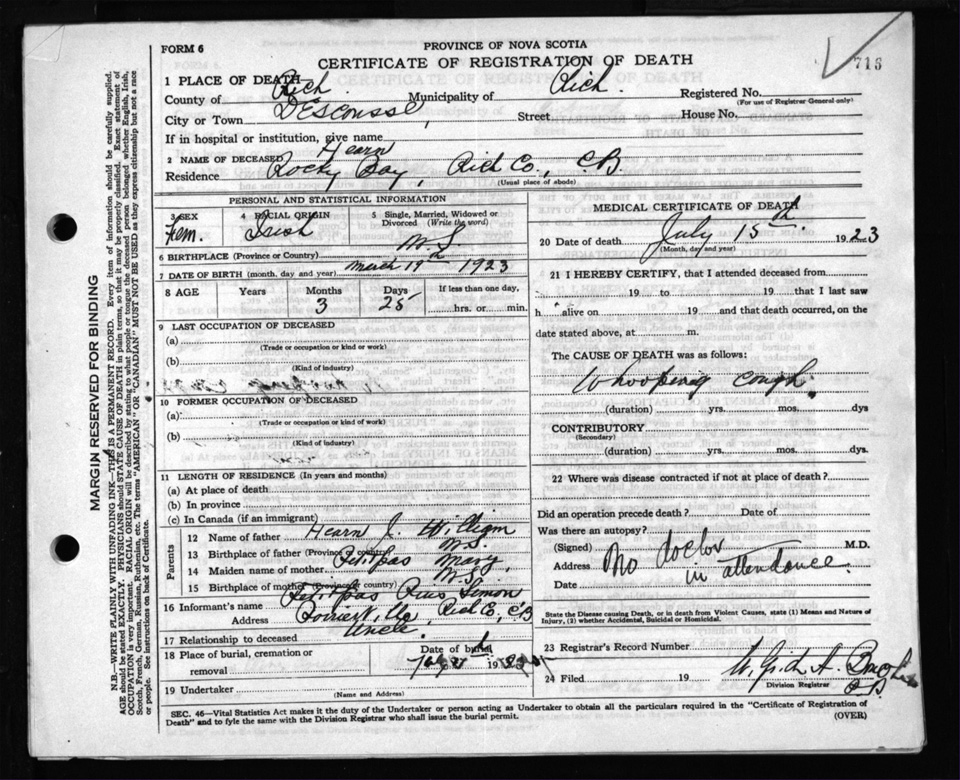 FORM 6
PROVINCE OF NOVA SCOTIA
CERTIFICATE OF REGISTRATION OF DEATH
713
1 PLACE OF DEATH
County of Rich Municipality of Rich. Registered No.
(For use of Registrar General only)
City or Town D'Escousse, Street House No.
If in hospital or institution, give name
2 NAME OF DECEASED Hearn
Residence Rocky Bay, Rich Co., C.B.
(Usual place of abode)
PERSONAL AND STATISTICAL INFORMATION
3 SEX Fem.
4 RACIAL ORIGIN Irish
5 Single, Married, Widowed or Divorced (Write the word)
6 BIRTHPLACE (Province or Country) N.S.
7 DATE OF BIRTH (month, day and year) March 19th 1923
8 AGE Years Months 3 Days 25 If less than one day, hrs. or min.
9 LAST OCCUPATION OF DECEASED
(a)
(Trade or occupation or kind or work)
(b)
(Kind of industry)
10 FORMER OCCUPATION OF DECEASED
(a):
(Trade or occupation or kind of work)
(b)
(Kind of industry)
11 LENGTH OF RESIDENCE (In years and months)
(a) At place of death
(b) In province
(c) In Canada (if an immigrant)
Parents
12 Name of father Hearn J. William
13 Birthplace of father (Province or country) N.S.
14 Maiden name of mother Petitpas Mary
15 Birthplace of mother (Province or country) N.S.
16 Informant's name Petitpas Pius Simon
Address Poirierville, Rich Co., C.B
17 Relationship to deceased Uncle.
18 Place of burial, cremation or removal
Date of burial July 19
19 Undertaker
(Name and Address)
MEDICAL CERTIFICATE OF DEATH
20 Date of death July 15th. 1923
(Month, day and year)
21 I HEREBY CERTIFY, that I attended deceased from
19 to 19 that I last saw
h alive on 19 and that death occurred, on the
date stated above, at m.
The CAUSE OF DEATH was as follows:
Whooping cough.
(duration) yrs. mos. dys
CONTRIBUTORY
(Secondary)
(duration) yrs. mos. dys.
22 Where was disease contracted if not at place of death?
Did an operation precede death? Date of
Was there an autopsy?
(Signed) No doctor M.D.
Address in attendance.
Date
State the Disease causing Death, or in death from Violent Causes, state (1) Means and Nature of
Injury, (2) whether Accidental, Suicidal or Homicidal.
23 Registrar's Record Number
24 Filed 19
Division Registrar
SEC. 46—Vital Statistics Act makes it the duty of the Undertaker or person acting as Undertaker to obtain all the particulars required in the "Certificate of Registration of
Death" and to fyle the same with the Division Registrar who shall issue the burial permit.
(OVER)
MARGIN RESERVED FOR BINDING
N.B.—WRITE PLAINLY WITH UNFADING INK—THIS IS A PERMANENT RECORD. Every item of information should be carefully supplied.
AGE should be stated EXACTLY. PHYSICIANS should STATE CAUSE OF DEATH in plain terms, so that it may be properly classified. Exact statement of
OCCUPATION is very important. RACIAL ORIGIN will be described by stating to what people or tongue the deceased person belonged whether English, Irish,
Scotch, French, German, Russian, Ruthenian, etc. The terms "AMERICAN" OR "CANADIAN" MUST NOT BE USED as they express citizenship but not a race
or people. See instructions on back of Certificate.